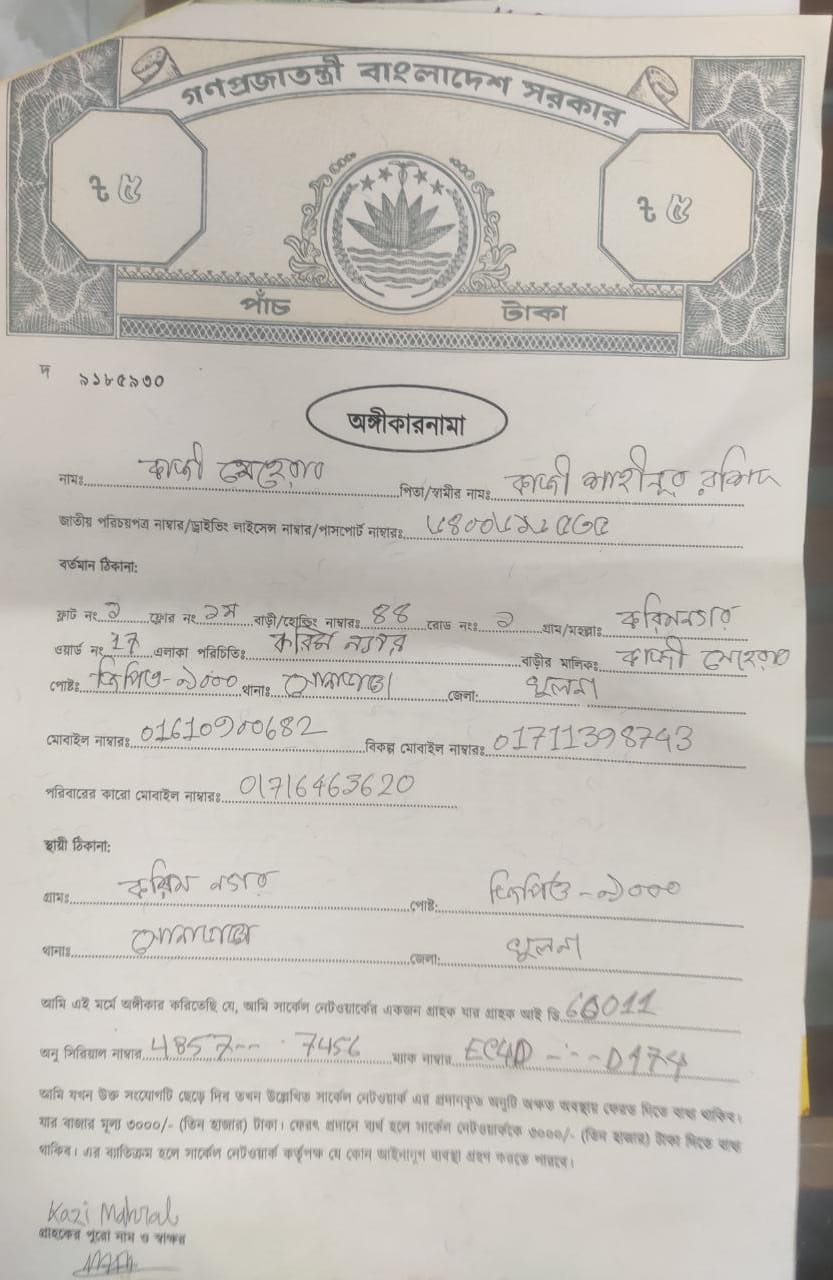 গণপ্রজাতন্ত্রী বাংলাদেশ সরকার
৳ ৫ ৳ ৫
পাঁচ টাকা
দ ৯১৮৫৯৩০
অঙ্গীকারনামা
নামঃ কাজী মেহেরাব পিতা/স্বামীর নামঃ কাজী শাহীনুর রশিদ
জাতীয় পরিচয়পত্র নাম্বার/ড্রাইভিং লাইসেন্স নাম্বার/পাসপোর্ট নাম্বারঃ
বর্তমান ঠিকানা:
ফ্লাট নং ১ ফ্লোর নং ১ম বাড়ী/হোল্ডিং নাম্বারঃ 88 রোড নংঃ ১ গ্রাম/মহল্লাঃ করিমনগর
ওয়ার্ড নং 17 এলাকা পরিচিতিঃ করিম নগর বাড়ীর মালিকঃ কাজী মেহেরাব
পোষ্টঃ জিপিও-৯০০০ থানাঃ সোনাডাঙ্গা জেলা: খুলনা
মোবাইল নাম্বারঃ 01610900682 বিকল্প মোবাইল নাম্বারঃ 01711398743
পরিবারের কারো মোবাইল নাম্বারঃ 01716463620
স্থায়ী ঠিকানা:
গ্রামঃ করিম নগর পোষ্ট: জিপিও-৯০০০
থানাঃ সোনাডাঙ্গা জেলা: খুলনা
আমি এই মর্মে অঙ্গীকার করিতেছি যে, আমি সার্কেল নেটওয়ার্কের একজন গ্রাহক যার গ্রাহক আই ডি 66011
অনু সিরিয়াল নাম্বার 4857-- 7456 ম্যাক নাম্বার EC4D --- D174
আমি যখন উক্ত সংযোগটি ছেড়ে দিব তখন উল্লেখিত সার্কেল নেটওয়ার্ক এর প্রদানকৃত অনুটি অক্ষত অবস্থায় ফেরত দিতে বাধ্য থাকিব।
যার বাজার মূল্য ৩০০০/- (তিন হাজার) টাকা। ফেরৎ প্রদানে ব্যর্থ হলে সার্কেল নেটওয়ার্ককে ৩০০০/- (তিন হাজার) টাকা দিতে বাধ্য
থাকিব। এর ব্যতিক্রম হলে সার্কেল নেটওয়ার্ক কর্তৃপক্ষ যে কোন আইনানুগ ব্যবস্থা গ্রহণ করতে পারবে।
Kazi Mahrab
গ্রাহকের পুরো নাম ও স্বাক্ষর